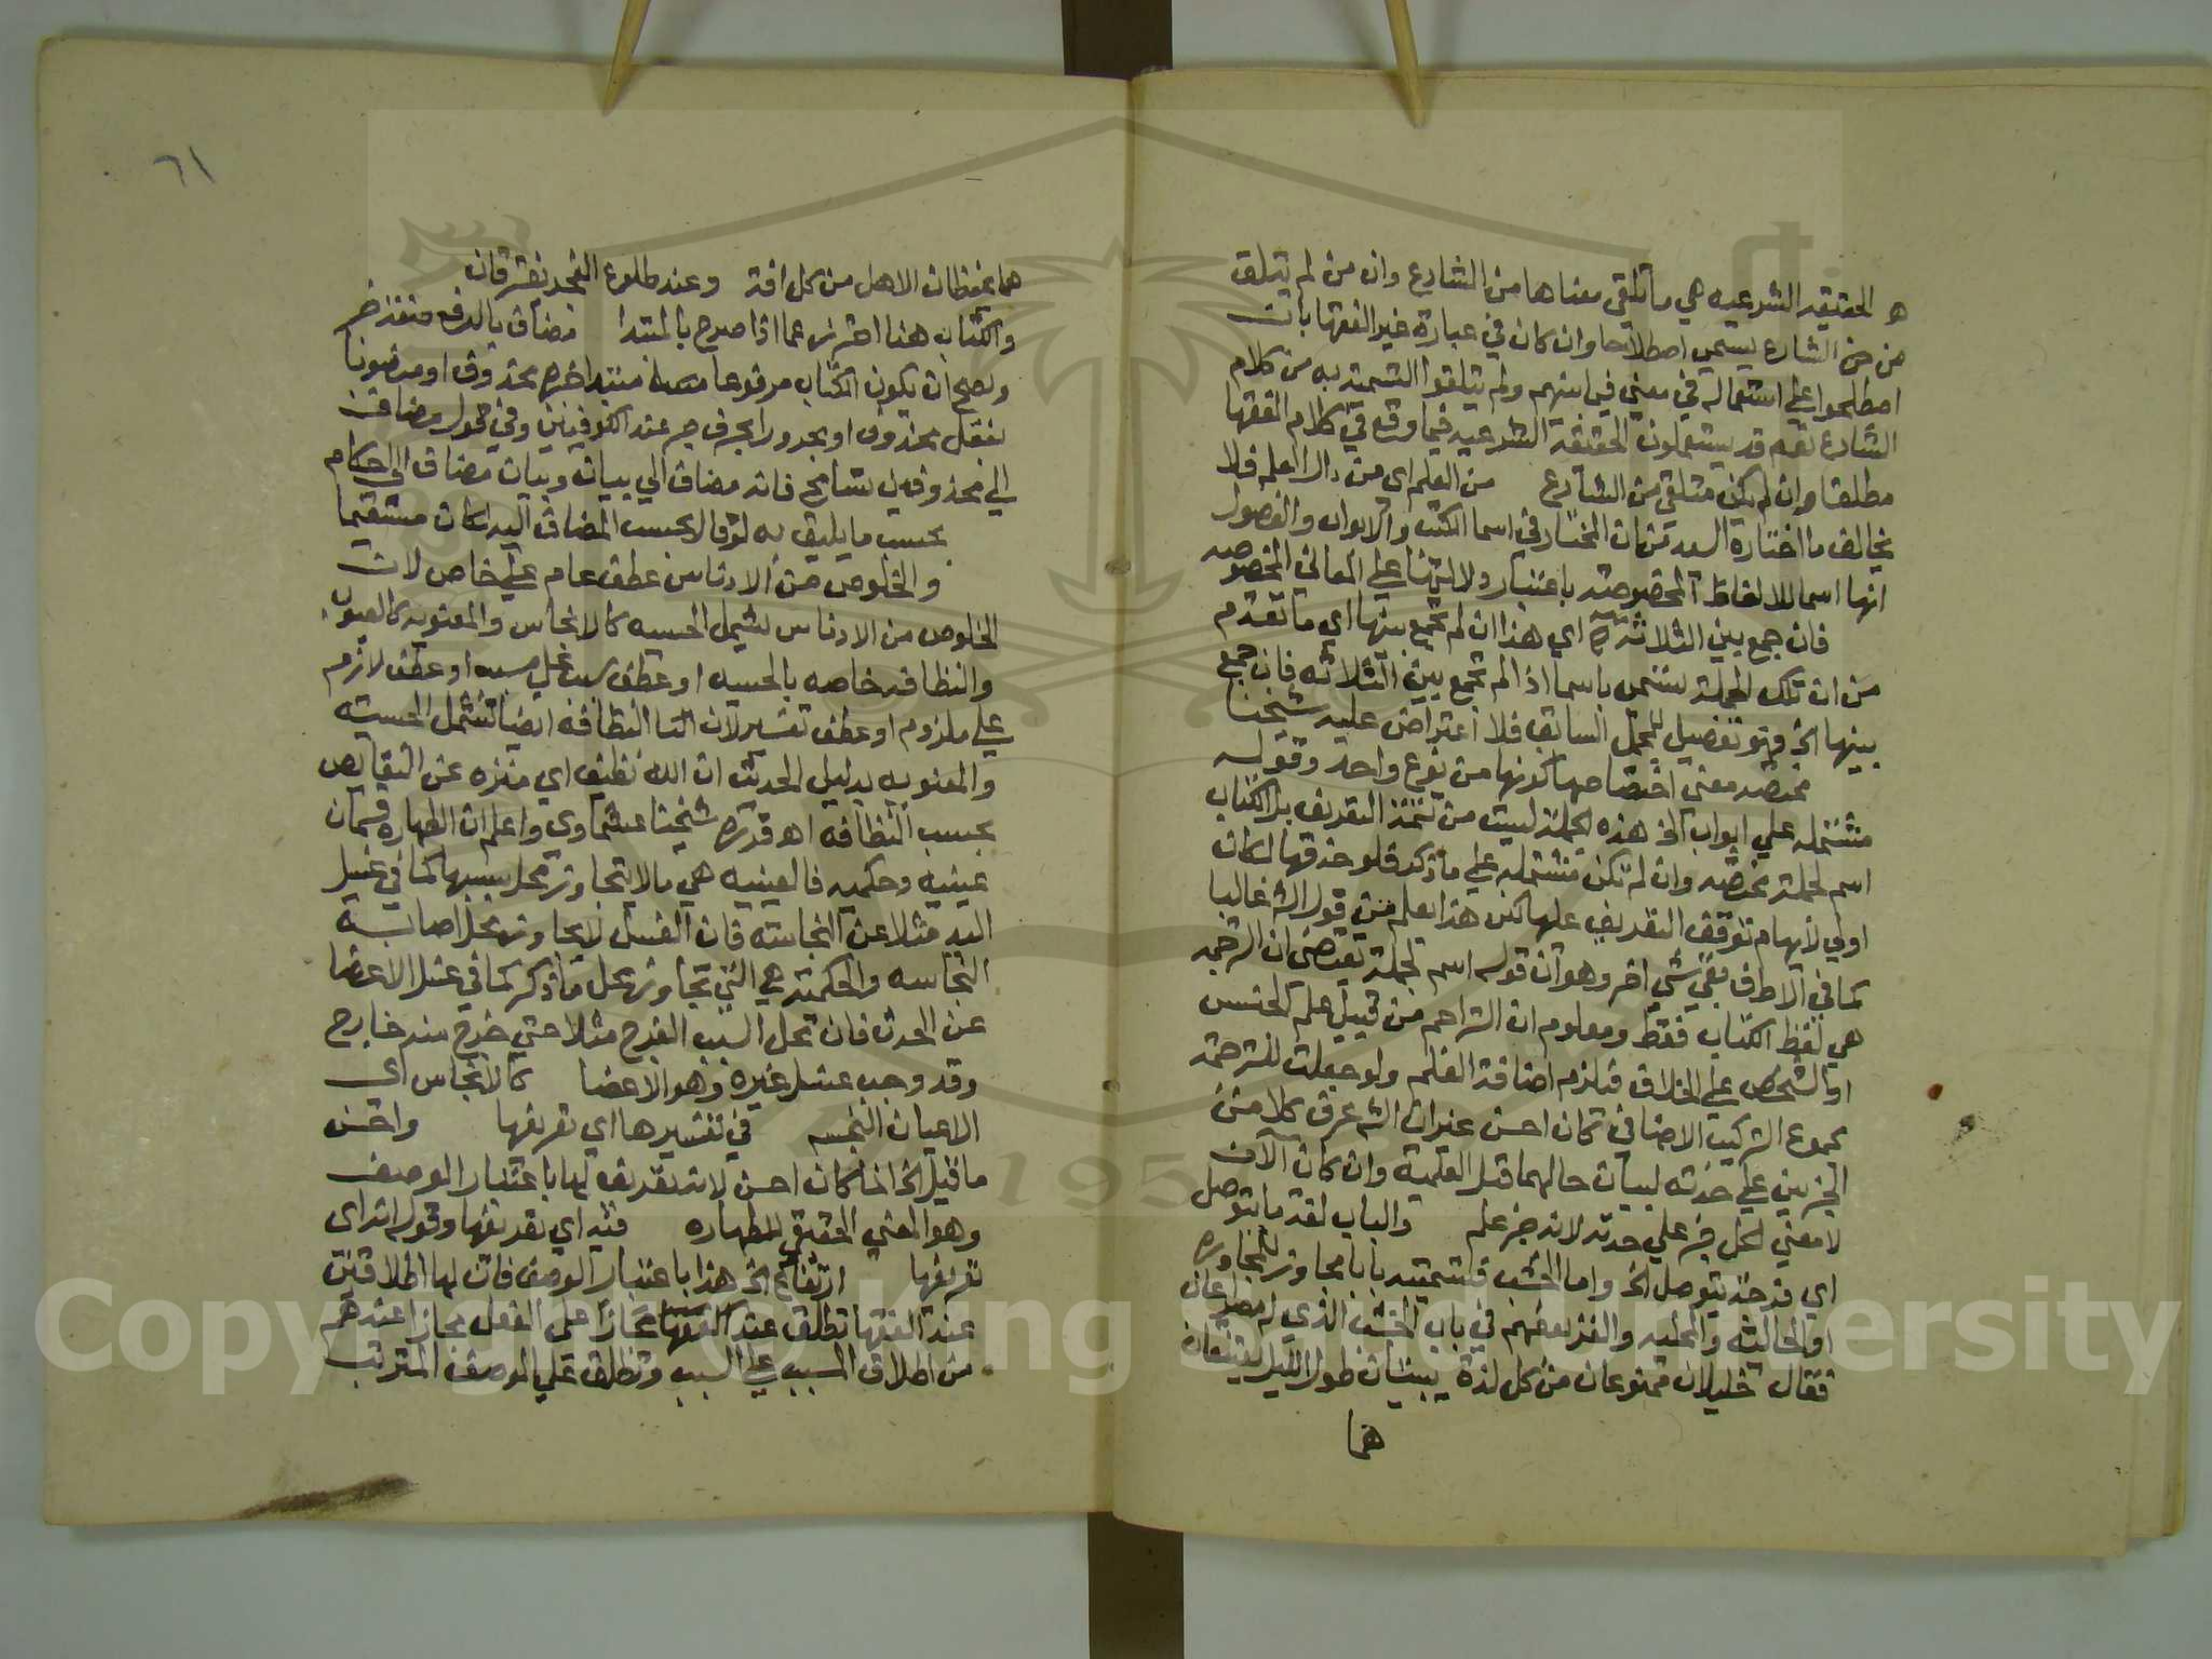 هو الحقيقه الشرعيه هي ما تلقى معناها من الشارع وان من لم يتلق
من من الشارع يسمى اصطلاحا وان كان في عبارة غير الفقها بان
اصطلحوا على استعماله في معنى فيما بينهم ولم يتلقوا التسمية به من كلام
الشارع نعم قد يستعملون الحقيقة الشرعيه فيما وقع في كلام الفقها
مطلقا وان لم يكن متلقى من الشارع من العلم اي من دال العلم فلا
يخالف ما اختاره السيد من ان المختار في اسما الكتب والابواب والفصول
انها اسما للالفاظ المخصوصه باعتبار دلالتها على المعاني المخصوصه
فان جمع بين الثلاثة اي هذا ان لم تجمع بينها اي ما تقدم
من ان تلك الجملة تسمى باسما اذا لم تجمع بين الثلاثه فان جمع
بينها الخ فهو تفصيل للمجمل السابق فلا اعتراض عليه شيخنا
مختصه معنى اختصاصها كونها من نوع واحد وقوله
مشتمله على ابواب الخ هذه الجملة ليست من تتمة التعريف بل الكتاب
اسم لجملة مختصه وان لم تكن مشتمله على ما ذكر فلو حذفها لكان
اولى لايهام توقف التعريف عليها لكن هذا يعلم من قول الش غالبا
كما في الاطف بقي شي اخر وهو ان قوله اسم لجملة يقتضي ان الترجمه
هي لفظ الكتاب فقط ومعلوم ان التراجم من قبيل علم الجنس
او الشخص على الخلاف فيلزم اضافة العلم ولو جعلت للترجمة
مجموع التركيب الاضافي لكان احسن غير ان الش عرف كلا من
الجزءين على حدته لبيان حالهما قبل العلمية وان كان الآن
لا معنى لكل جزء على حدته لانه جزء علم والباب لغة ما يتوصل
اي فرجة يتوصل الخ واما الخشب فتسميته بابا مجاز للمجاوره
او الحاليه والمحليه والغز بعضهم في باب الخشب الذي له مصراعان
فقال خليلان ممنوعان من كل لذة يبيتان طول الليل يعتنقان
هما
٦١
هما يحفظان الاهل من كل افة وعند طلوع الفجر يفترقان
والكتاب هنا احترز عما اذا صرح بالمبتدا مضاف بالرفع
ويصح ان يكون الكتاب مرفوعا مبتدا خبره محذوف او منصوبا
بفعل محذوف او مجرورا بحرف جر عند الكوفيين وفي قول مضاف
الى محذوفين تسامح فانه مضاف الى بيان وبيان مضاف الى احكام
بحسب ما يليق به لو قال بحسب المضاف اليه لكان مستقيما
والخلوص من الادناس عطف عام على خاص لان
الخلوص من الادناس يشمل الحسيه كالانجاس والمعنويه كالعيوب
والنظافه خاصه بالحسيه او عطف سبب على مسبب او عطف لازم
على ملزوم او عطف تفسير لان النظافه ايضا تشمل الحسيه
والمعنويه بدليل الحديث ان الله نظيف اي منزه عن النقايص
بحسب النظافه اه قرره شيخنا عشماوي واعلم ان الطهاره قسمان
عينيه وحكميه فالعينيه هي ما لا يتجاوز محل سببها كما في غسل
اليد مثلا عن النجاسته فان الغسل لا يجاوز محل اصابة
النجاسه والحكميه هي التي تجاوز محل ما ذكر كما في غسل الاعضا
عن الحدث فان محل السبب الفرج مثلا حتى خرج منه خارج
وقد وجب غسل غيره وهو الاعضا كالانجاس اي
الاعيان النجسه في تفسيرها اي تعريفها واحسن
ما قيل الخ انما كان احسن لانه تعريف لها باعتبار الوصف
وهو المعنى الحقيقي للطهاره فيه اي تعريفها وقوله انه اي
تعريفها ارتفاع الخ هذا باعتبار الوصف فان لها اطلاقين
عند الفقها تطلق عند الفقها مجازا على الفعل مجازا عندهم
من اطلاق المسبب على السبب وتطلق على الوصف المترتب
Copyright © King Saud University
1957